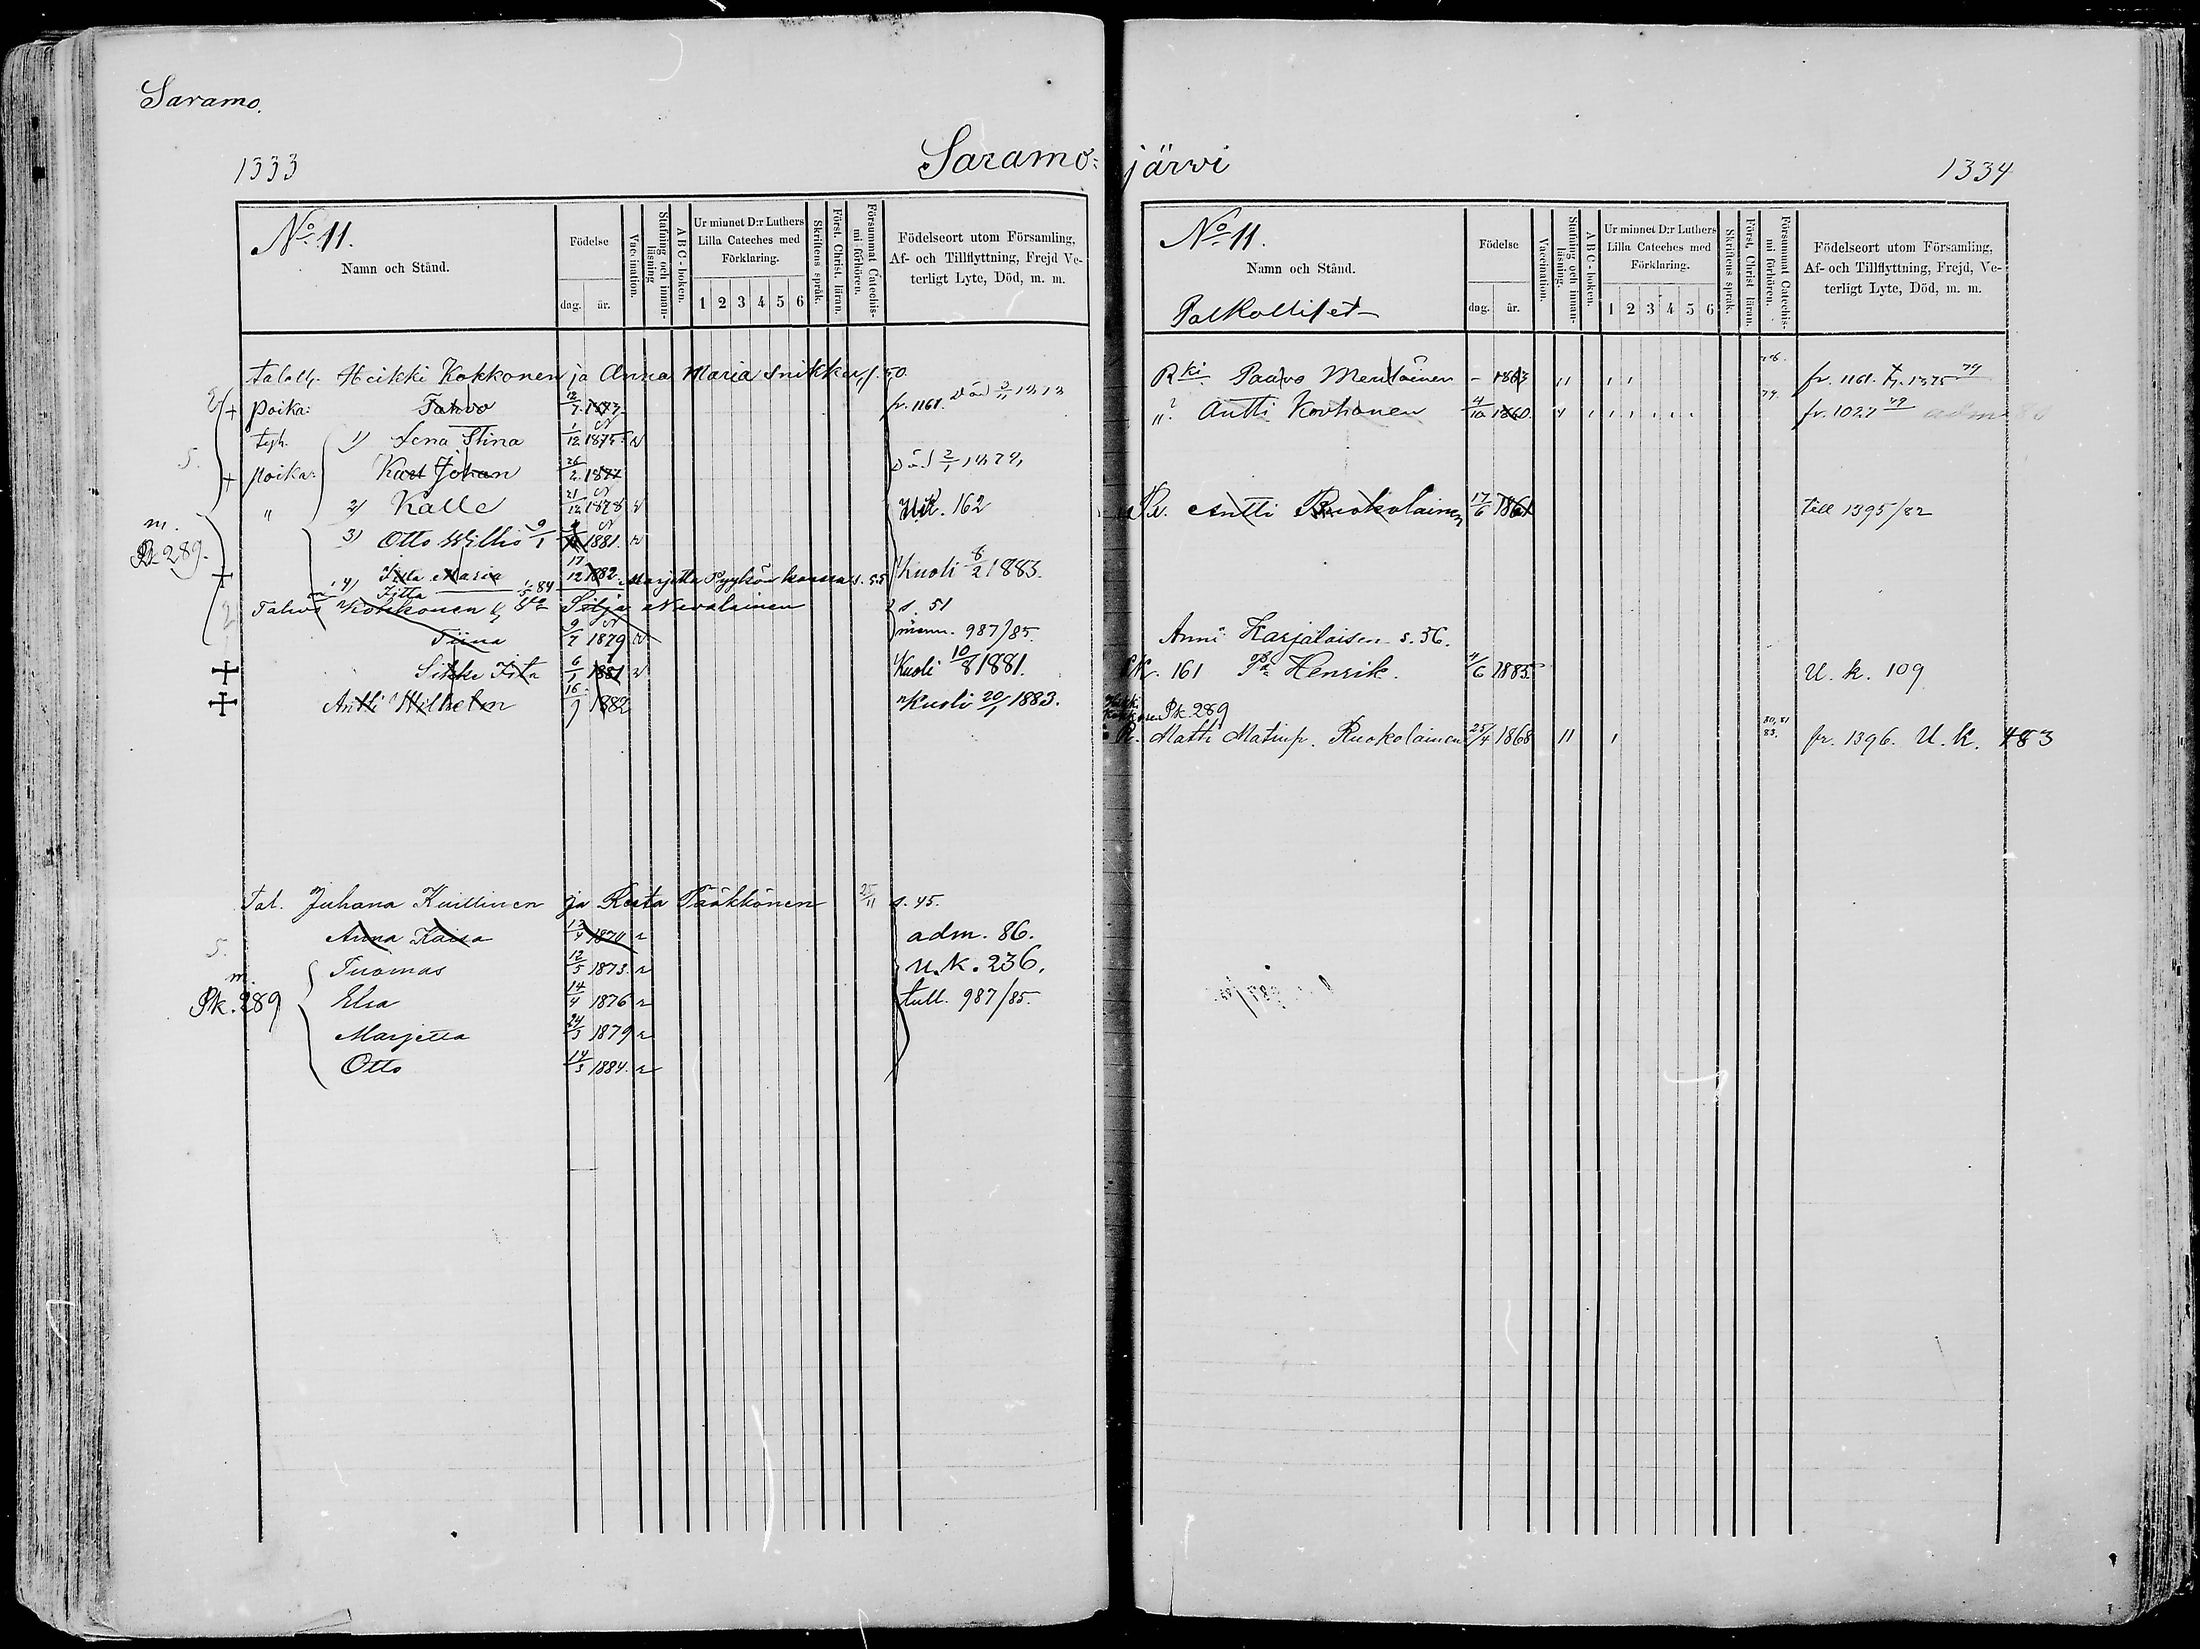 Saramo.
1333
Saramo=
No 11.
Namn och Stånd.
Födelse
dag. år.
Vaccination.
Stafning och innanläsning
ABC-boken.
Ur minnet D:r Luthers Lilla Cateches med Förklaring.
1 2 3 4 5 6
Skriftens språk.
Först. Christ. läran.
Försummat Catechismi förhören.
Födelseort utom Församling, Af- och Tillflyttning, Frejd Veterligt Lyte, Död, m. m.
Heikki Kokkonen ja Anna Maria Snikker, f. 50.
+ poika: Tahvo 12/7 1873 fr. 1161. Död
tyh. 1) Lena Stina 1/12 1875
+ poika: Karl Johan 26/2 1877 Död
" 2) Kalle 21/12 1878 Uk. 162
m. Pk 289.
3) Otto Wilho 9/1 1881.
+ Iita Maria 17/12 1882 Marjetta Pyykön kanssa s. 55 Kuoli 8/2 1883.
4) Iitta 84
Tahvo Kokkonen Silja Nevalainen s. 51
Tiina 9/7 1879 987/85.
+ Sikke Iita 6/1 1881 Kuoli 10/8 1881.
+ Antti Wilhelm 16/9 1882 Kuoli 20/1 1883.
Tal. Juhana Kuittinen ja Reeta Pääkkönen 25/11 s. 45.
5. Anna Kaisa 12/4 1870 adm. 86.
m. Tuomas 12/5 1873. U.k. 236.
Pk. 289 Elsa 14/4 1876 tull. 987/85.
Marjetta 24/3 1879
Otto 14/3 1884.
järvi
1334
No 11.
Namn och Stånd.
Palkolliset
Födelse
dag. år.
Vaccination.
Stafning och innanläsning.
ABC-boken.
Ur minnet D:r Luthers Lilla Cateches med Förklaring.
1 2 3 4 5 6
Skriftens språk.
Först. Christ läran.
Försummat Catechismi förhören.
Födelseort utom Församling, Af- och Tillflyttning, Frejd, Veterligt Lyte, Död, m. m.
Rki Paavo Meriläinen – 1863 fr. 1161. 1375 79
" Antti Korhonen 4/10 1860. 79. fr. 1027 79
Antti Ruokolainen 17/6 1861 till 1395/82
Anni Karjalaisen s. 56.
Pk. 161 Pa Henrik. 4/6 1885. U. k. 109
Heikki Kokkonen Pk. 289
R. Matti Matinp. Ruokolainen 25/4 1868 80, 81 83. fr. 1396. U. k. 483